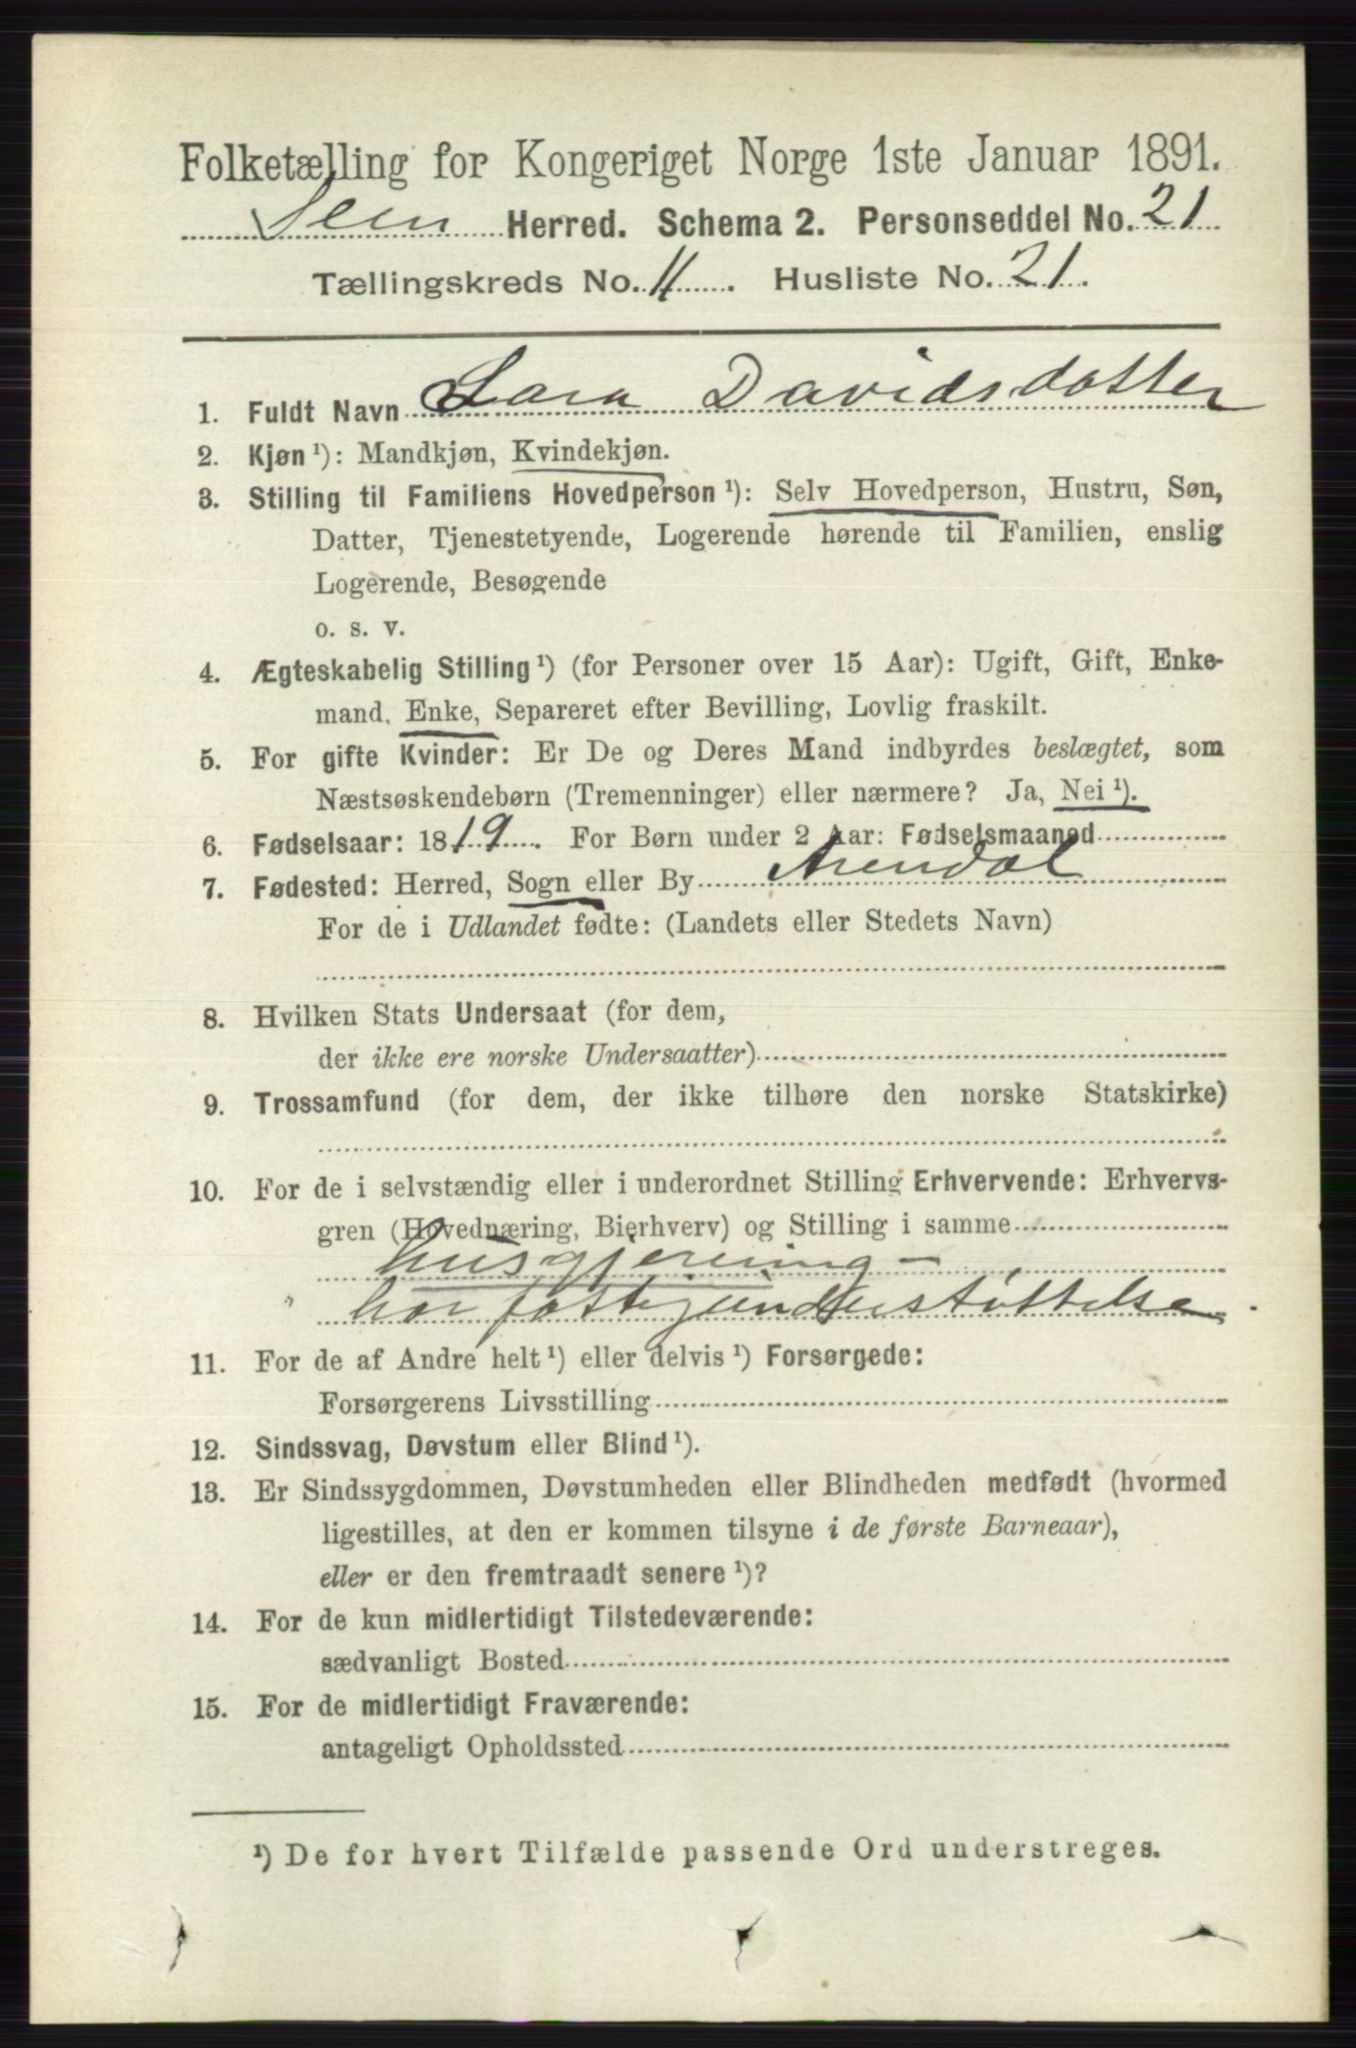 Folketælling for Kongeriget Norge 1ste Januar 1891.
Sem Herred. Schema 2. Personseddel No. 21
Tællingskreds No. 11. Husliste No. 21.
1. Fuldt Navn Sara Davidsdatter
2. Kjøn ¹): Mandkjøn, Kvindekjøn.
3. Stilling til Familiens Hovedperson ¹): Selv Hovedperson, Hustru, Søn,
Datter, Tjenestetyende, Logerende hørende til Familien, enslig
Logerende, Besøgende
o. s. v.
4. Ægteskabelig Stilling ¹) (for Personer over 15 Aar): Ugift, Gift, Enke-
mand, Enke, Separeret efter Bevilling, Lovlig fraskilt.
5. For gifte Kvinder: Er De og Deres Mand indbyrdes beslægtet, som
Næstsøskendebørn (Tremenninger) eller nærmere? Ja, Nei ¹).
6. Fødselsaar: 1819. For Børn under 2 Aar: Fødselsmaaned
7. Fødested: Herred, Sogn eller By Arendal
For de i Udlandet fødte: (Landets eller Stedets Navn)
8. Hvilken Stats Undersaat (for dem,
der ikke ere norske Undersaatter)
9. Trossamfund (for dem, der ikke tilhøre den norske Statskirke)
10. For de i selvstændig eller i underordnet Stilling Erhvervende: Erhvervs-
gren (Hovednæring, Bierhverv) og Stilling i samme
husgjerning -
har fattigunderstøttelse.
11. For de af Andre helt ¹) eller delvis ¹) Forsørgede:
Forsørgerens Livsstilling
12. Sindssvag, Døvstum eller Blind ¹).
13. Er Sindssygdommen, Døvstumheden eller Blindheden medfødt (hvormed
ligestilles, at den er kommen tilsyne i de første Barneaar),
eller er den fremtraadt senere ¹)?
14. For de kun midlertidigt Tilstedeværende:
sædvanligt Bosted
15. For de midlertidigt Fraværende:
antageligt Opholdssted
¹) De for hvert Tilfælde passende Ord understreges.